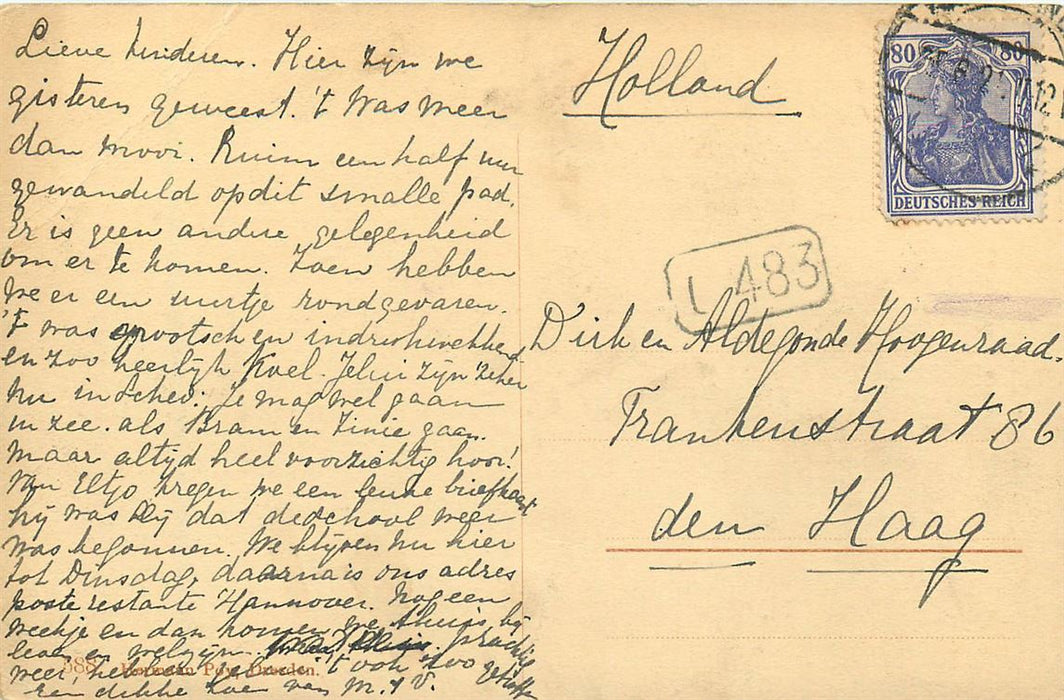 Lieve kinderen. Hier zijn we
gisteren geweest. 't Was meer
dan mooi. Ruim een half uur
gewandeld op dit smalle pad.
Er is geen andere gelegenheid
om er te komen. Toen hebben
we er een uurtje rondgevaren.
't was grootsch en indrukwekkend
en zoo heerlijk koel. Jelui zijn zeker
nu in Schev: Je mag wel gaan
in zee. als Bram en Tinie gaan.
Maar altijd heel voorzichtig hoor!
Van Eltjo kregen we een leuke briefkaart
hij was blij dat de school weer
was begonnen. We blijven nu hier
tot Dinsdag, daarna is ons adres
poste restante Hannover. Nog een
weekje en dan komen we thuis bij
leven en welzijn. prachtig
weer, hebben jelui 't ook zoo
Een dikke zoen van M. & V.
588 Hermann Poy, Dresden.
Holland
80 80
DEUTSCHES REICH
L 483
Dirk en Aldegonde Hoogenraad.
Frankenstraat 86
den Haag